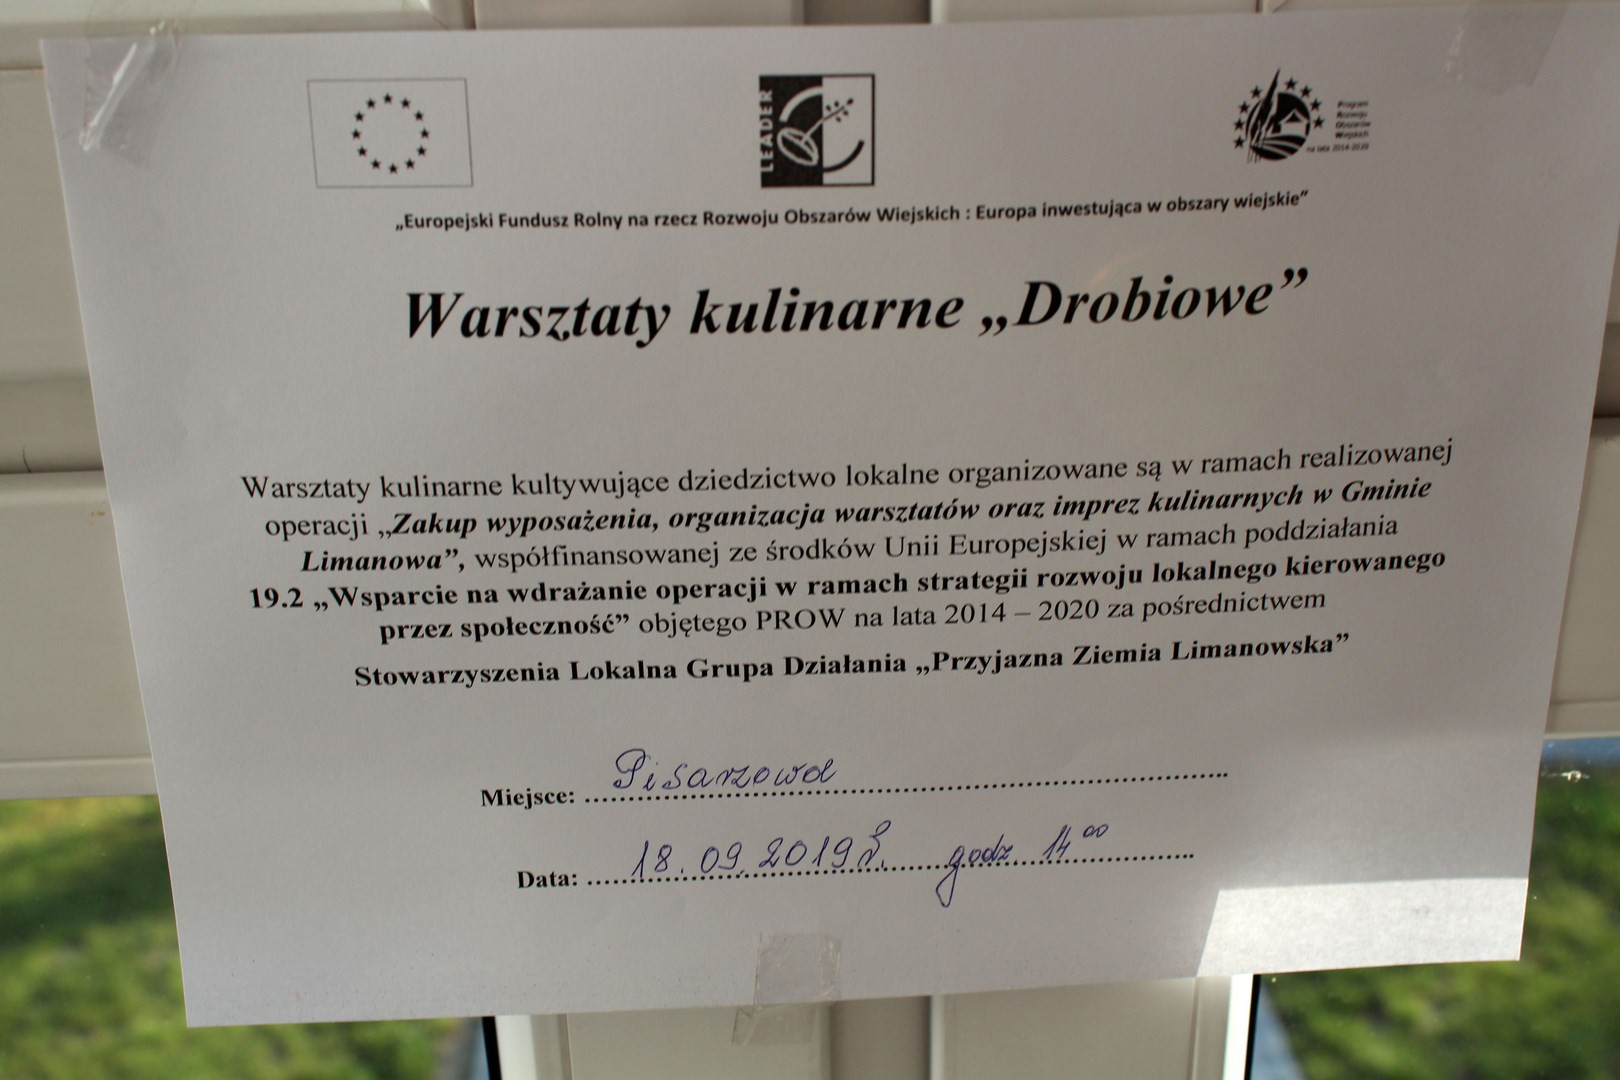 LEADER
Program
Rozwoju
Obszarów
Wiejskich
na lata 2014-2020
„Europejski Fundusz Rolny na rzecz Rozwoju Obszarów Wiejskich : Europa inwestująca w obszary wiejskie”
Warsztaty kulinarne „Drobiowe”
Warsztaty kulinarne kultywujące dziedzictwo lokalne organizowane są w ramach realizowanej
operacji „Zakup wyposażenia, organizacja warsztatów oraz imprez kulinarnych w Gminie
Limanowa”, współfinansowanej ze środków Unii Europejskiej w ramach poddziałania
19.2 „Wsparcie na wdrażanie operacji w ramach strategii rozwoju lokalnego kierowanego
przez społeczność” objętego PROW na lata 2014 – 2020 za pośrednictwem
Stowarzyszenia Lokalna Grupa Działania „Przyjazna Ziemia Limanowska”
Miejsce: Pisarzowa
Data: 18.09.2019 r. godz 14 00